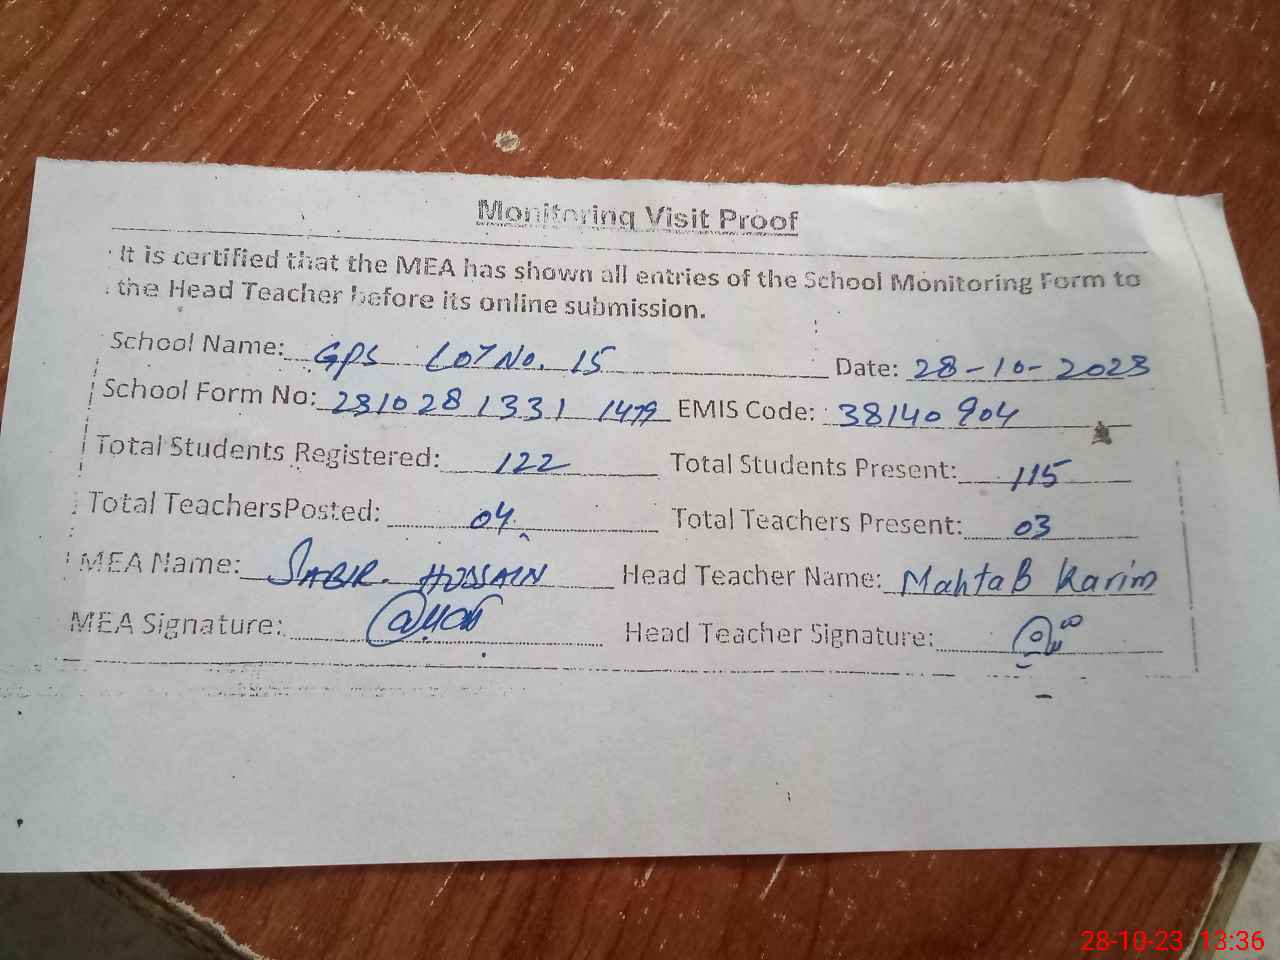 Monitoring Visit Proof
It is certified that the MEA has shown all entries of the School Monitoring Form to
the Head Teacher before its online submission.
School Name: GPS LOT No. 15 Date: 28-10-2023
School Form No: 231028 1331 1479 EMIS Code: 38140904
Total Students Registered: 122 Total Students Present: 115
Total TeachersPosted: 04 Total Teachers Present: 03
MEA Name: SABIR. HUSSAIN Head Teacher Name: Mahtab Karim
MEA Signature: Head Teacher Signature:
28-10-23 13:36